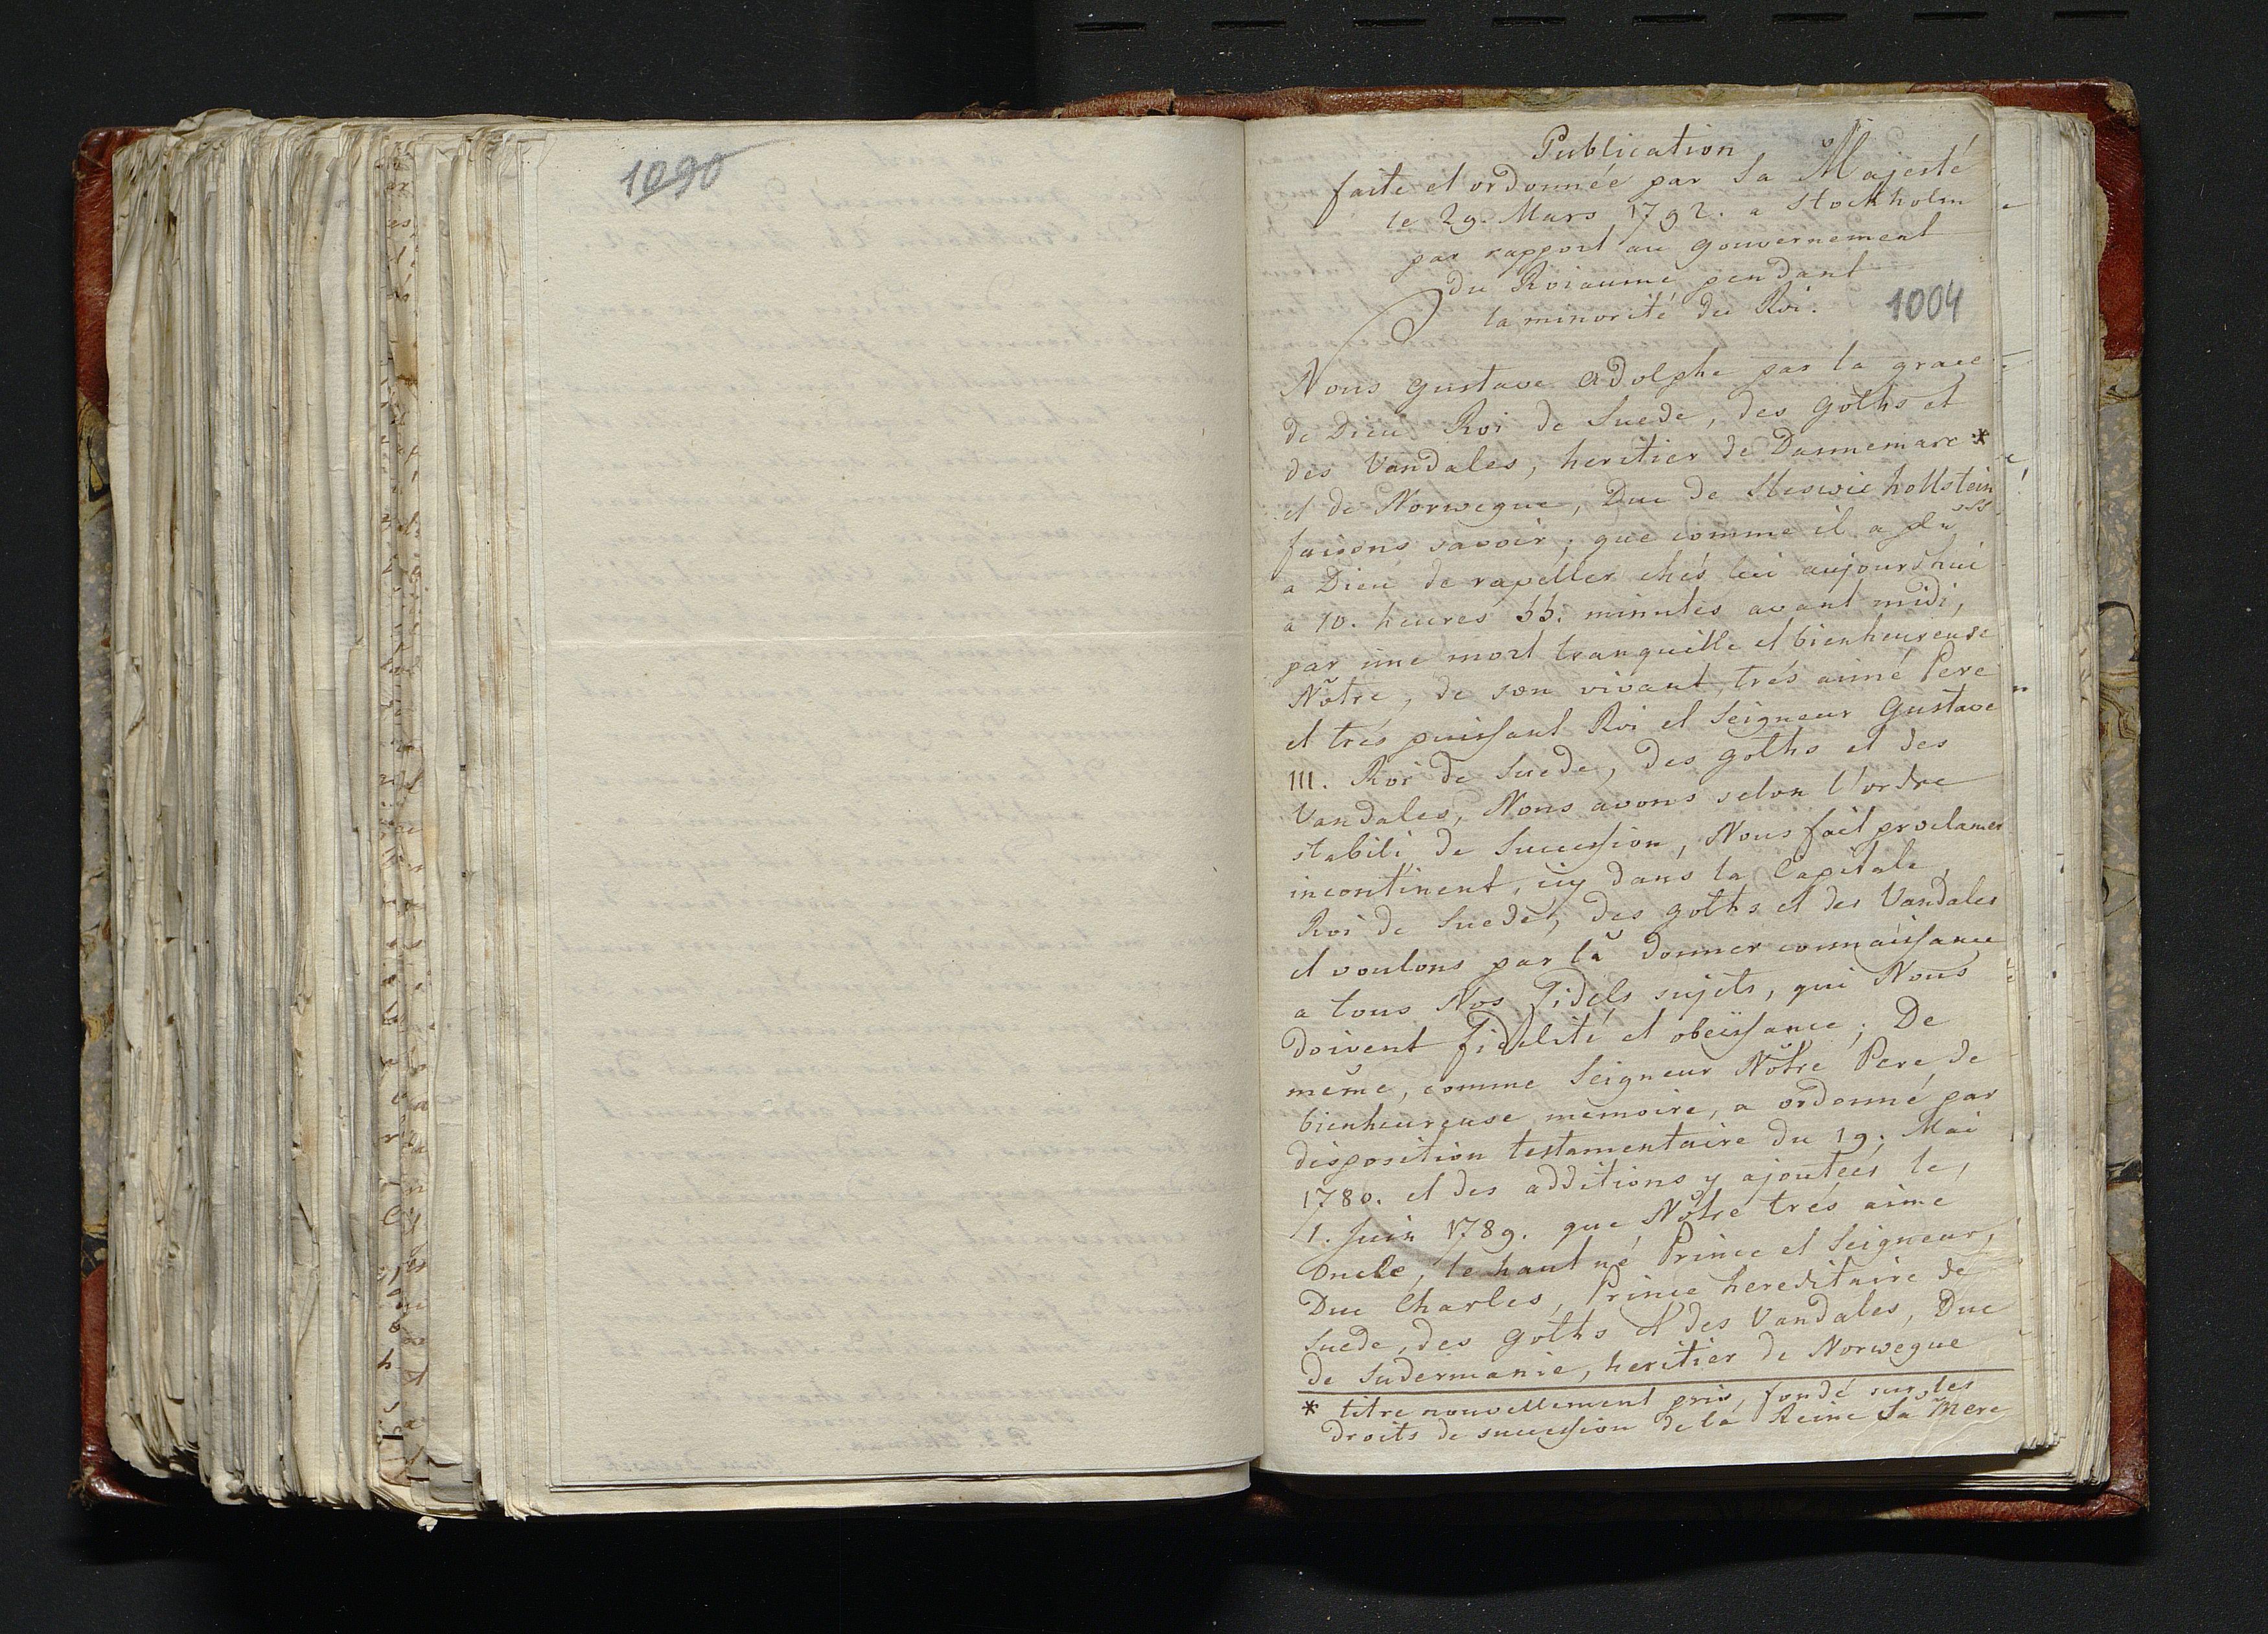 1090
Publication
faite et ordonnée par Sa Majesté
le 29. Mars 1792. a Stockholm
par rapport au gouvernement
du Roiaume pendant
la minorité du Roi.
1004
Nous Gustave Adolphe par la grace
de Dieu Roi de Suede, des goths et
des Vandales, heritier de Dannemarc *
et de Norwegue, Duc de Sleswic hollstein
faisons savoir; que comme il a plu
a Dieu de rapeller chés lui aujourdhui
a 10. heures 55. minutes avant midi,
par une mort tranquille et bienheureuse
Nôtre, de son vivant, trés aimé Pere
et trés puissant Roi et Seigneur Gustave
III. Roi de Suede, des goths et des
Vandales, Nous avons selon l'ordre
stabili de Succession, Nous fait proclamer
incontinent, icy dans la Capitale,
Roi de Suede, des goths et des Vandales
et voulons par là donner connaissance
a tous Nos Fidels sujets, qui Nous
doivent fidelité et obeissance; De
même, comme Seigneur Nôtre Pere, de
bienheureuse memoire, a ordonné par
disposition testamentaire du 19. Mai
1780. et des additions y ajoutées le,
1. Juin 1789. que Nôtre trés aimé
Oncle, le haut né Prince et Seigneur,
Duc Charles, Prince hereditaire de
Suede, des goths et des Vandales, Duc
de Sudermanie, heritier de Norwegue
* titre nouvellement pris, fondé sur les
droits de succession de la Reine Sa Mere